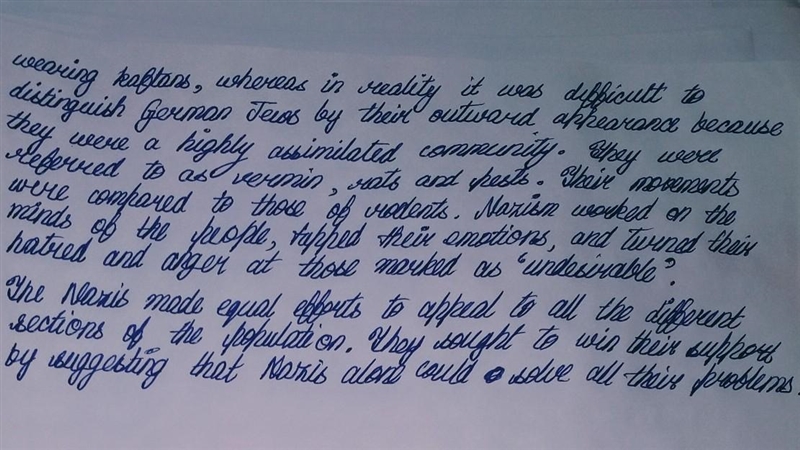 wearing kaftans, whereas in reality it was difficult to
distinguish German Jews by their outward appearance because
they were a highly assimilated community. They were
referred to as vermin, rats and pests. Their movements
were compared to those of rodents. Nazism worked on the
minds of the people, tapped their emotions, and turned their
hatred and anger at those marked as "undesirable".
The Nazis made equal efforts to appeal to all the different
sections of the population. They sought to win their support
by suggesting that Nazis alone could solve all their problems.